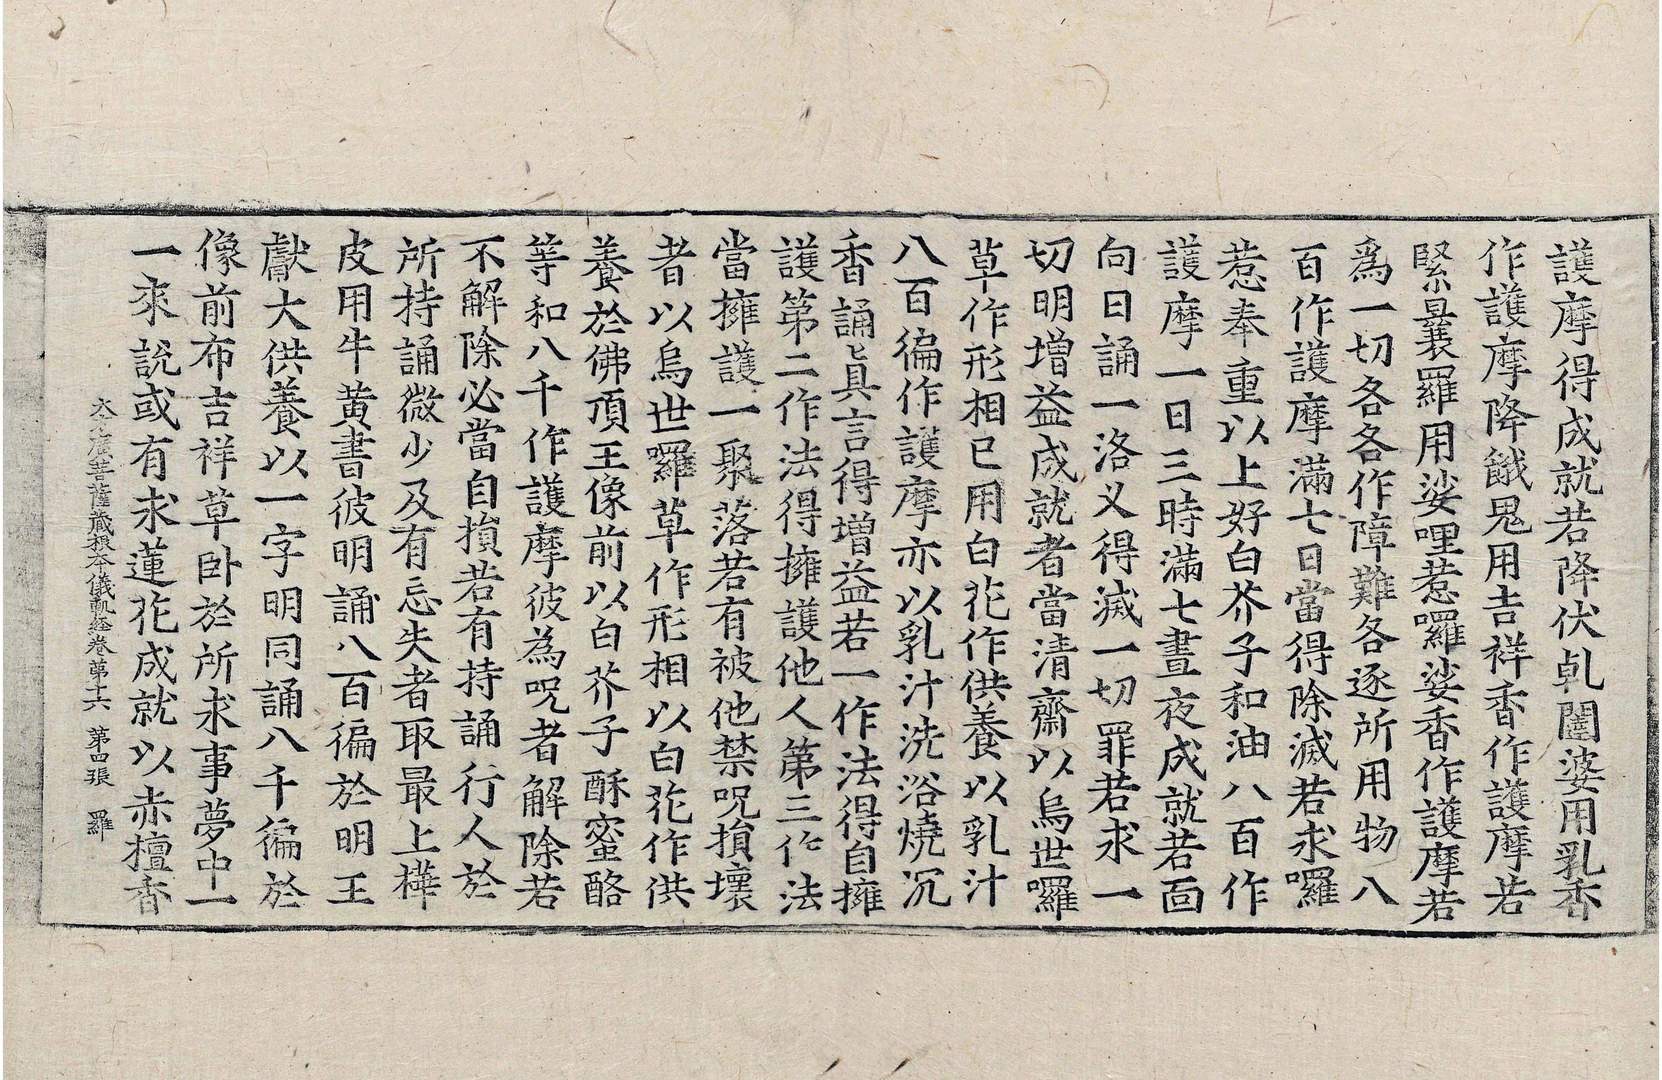 護摩得成就若降伏乹闥婆用乳香
作護摩降餓鬼用吉祥香作護摩若
緊曩羅用娑哩惹囉娑香作護摩若
爲一切各各作障難各逐所用物八
百作護摩滿七日當得除滅若求囉
惹奉重以上好白芥子和油八百作
護摩一日三時滿七晝夜成就若面
向日誦一洛义得滅一切罪若求一
切明增益成就者當清齋以烏世囉
草作形相已用白花作供養以乳汁
八百徧作護摩亦以乳汁洗浴燒沉
香誦眞言得增益若一作法得自擁
護第二作法得擁護他人第三作法
當擁護一聚落若有被他禁呪損壞
者以烏世囉草作形相以白花作供
養於佛頂王像前以白芥子酥蜜酪
等和八千作護摩彼為呪者解除若
不解除必當自損若有持誦行人於
所持誦微少及有忘失者取最上樺
皮用牛黄書彼明誦八百徧於明王
獻大供養以一字明同誦八千徧於
像前布吉祥草卧於所求事夢中一
一來說或有求蓮花成就以赤檀香
大方廣菩薩藏根本儀軌經卷第十六 第四張 羅